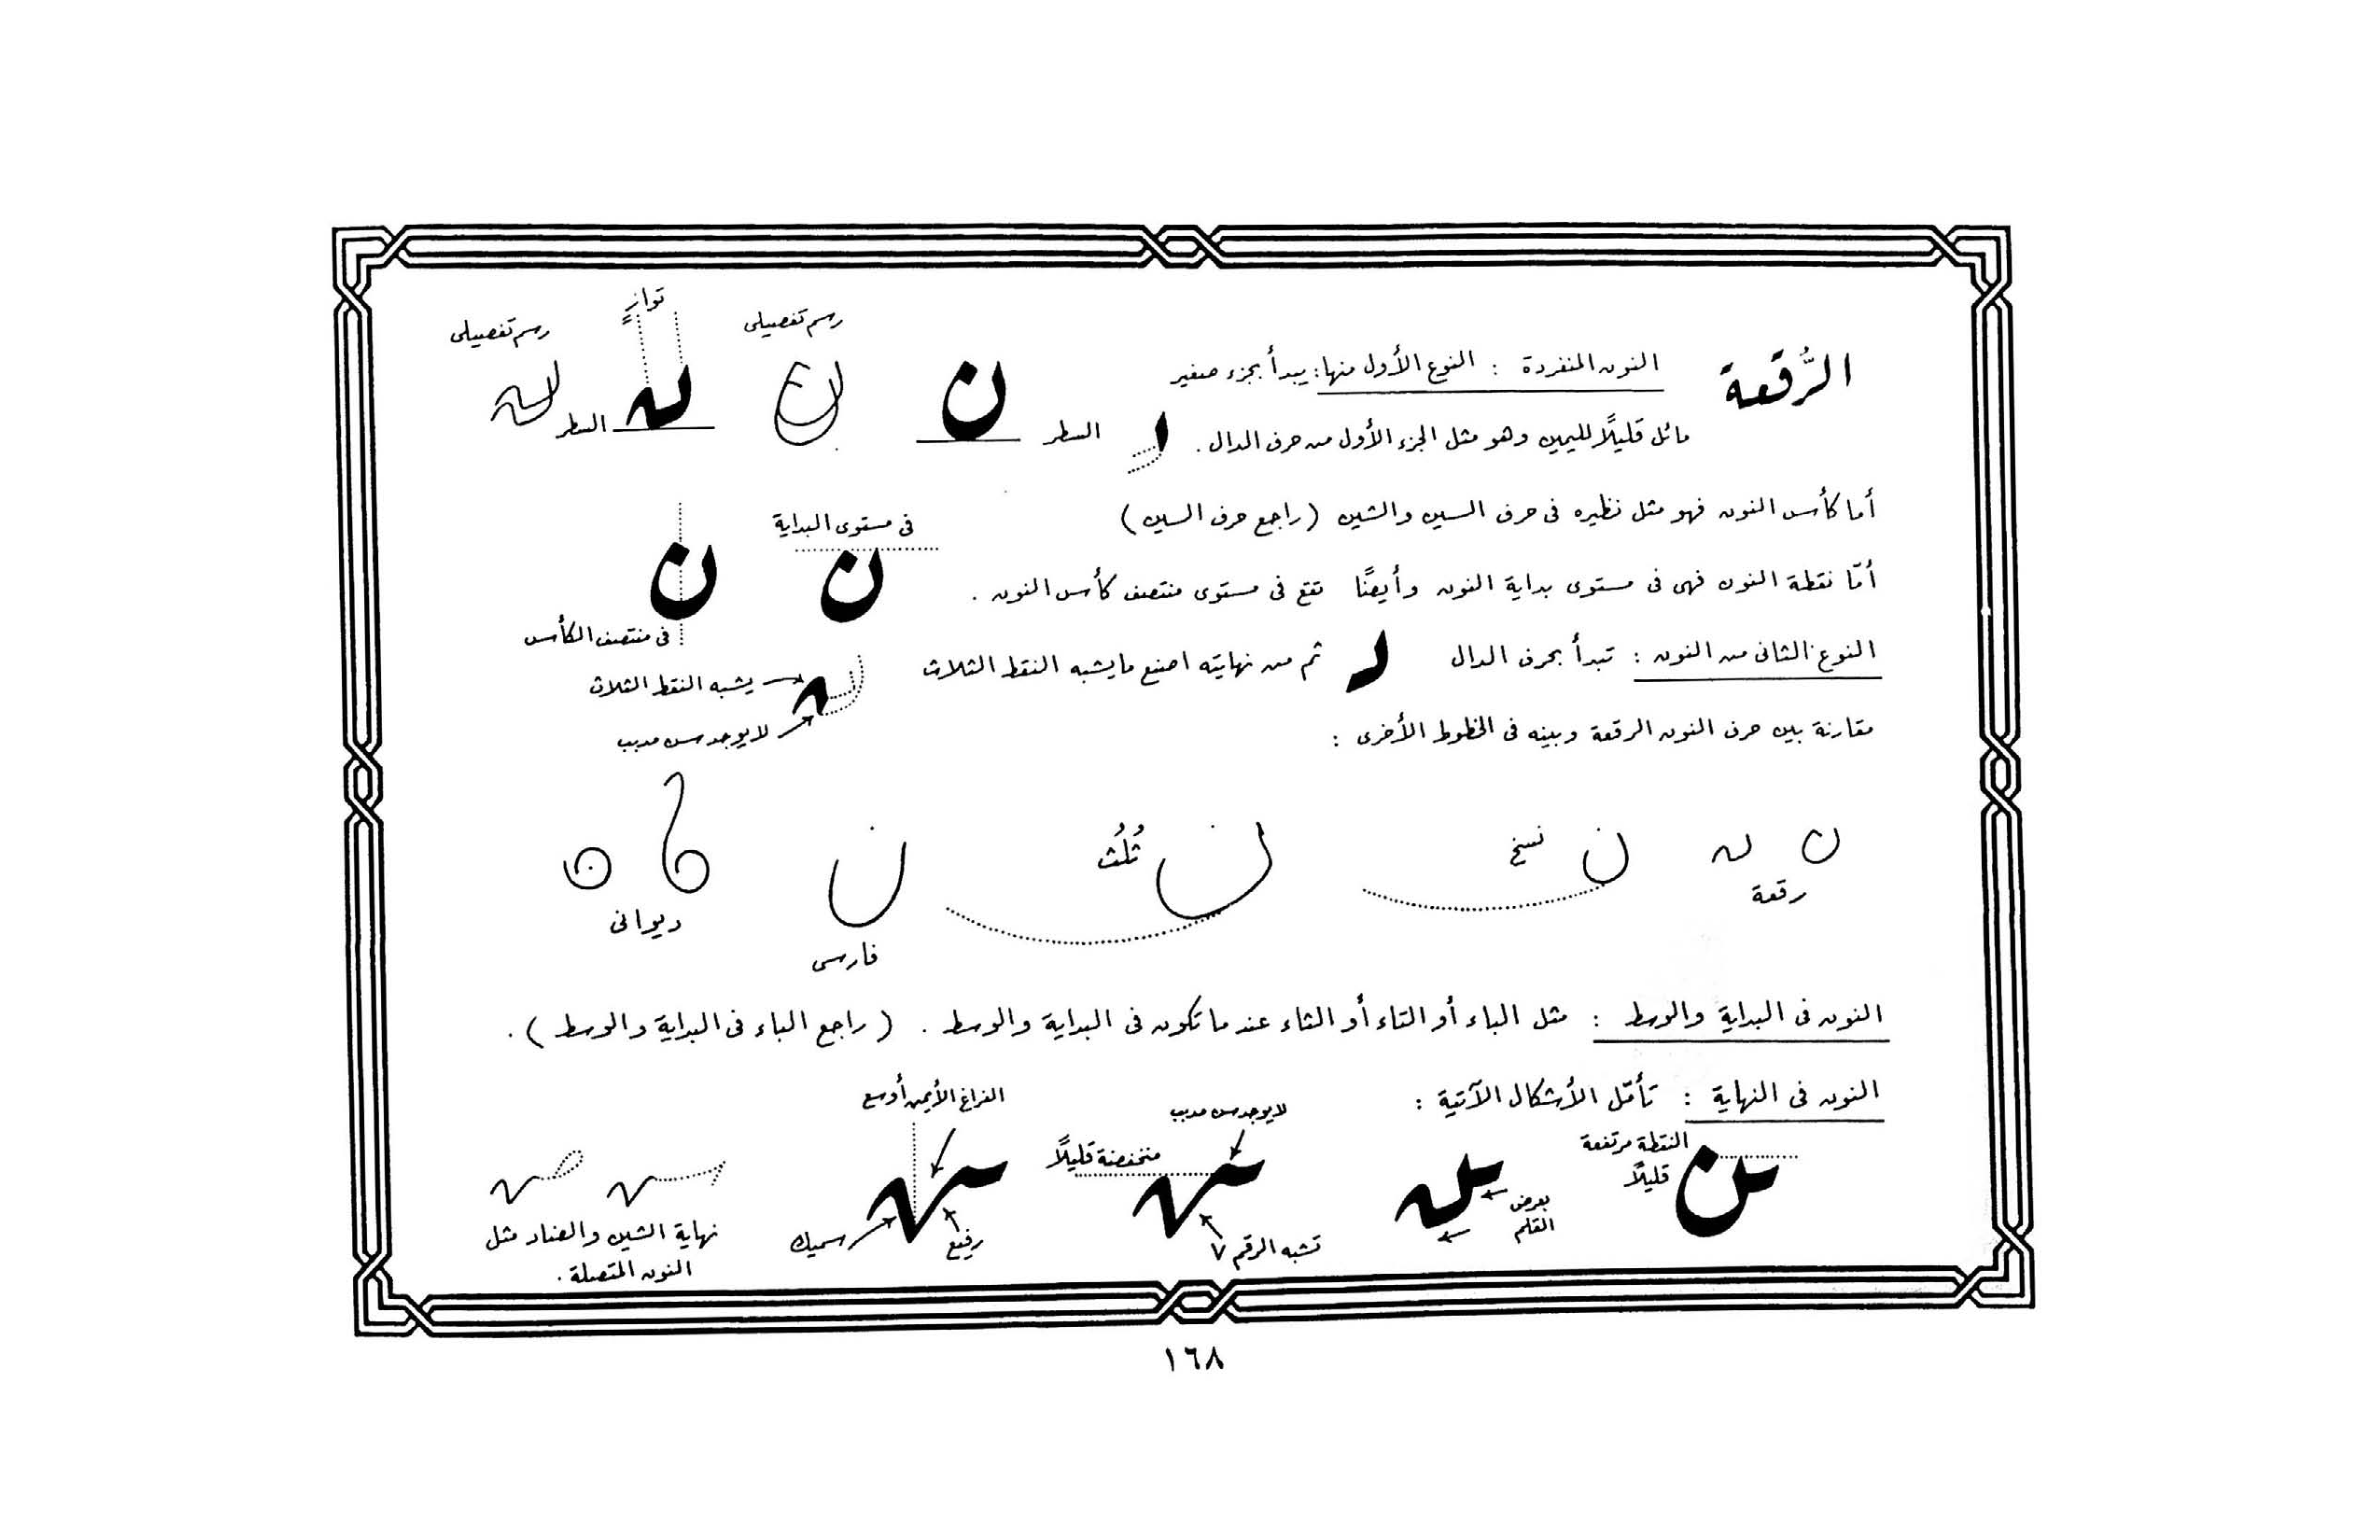 الرُّقعة
النون المنفردة : النوع الأول منها: يبدأ بجزء صغير
مائل قليلًا لليمين وهو مثل الجزء الأول من حرف الدال .
السطر
ن
رسم تفصيلى
توازٍ
السطر
رسم تفصيلى
أما كأس النون فهو مثل نظيره فى حرف السين والشين (راجع حرف السين)
فى مستوى البداية
ن ن
أمّا نقطة النون فهى فى مستوى بداية النون وأيضًا تقع فى مستوى منتصف كأس النون .
فى منتصف الكأس
النوع الثانى من النون : تبدأ بحرف الدال ثم من نهايته اصنع مايشبه النقط الثلاث
يشبه النقط الثلاث
لايوجد سن مدبب
مقارنة بين حرف النون الرقعة وبينه فى الخطوط الأخرى :
ن ن
رقعة
ن نسخ
ن ثُلُث
ن
فارسى
ديوانى
النون فى البداية والوسط : مثل الباء أو التاء أو الثاء عندما تكون فى البداية والوسط . (راجع الباء فى البداية والوسط) .
النون فى النهاية : تأمّل الأشكال الآتية :
النقطة مرتفعة
قليلًا
بعرض
القلم
لايوجد سن مدبب
منخفضة قليلًا
تشبه الرقم ٧
الفراغ الأيمن أوسع
رفيع
سميك
نهاية الشين والضاد مثل
النون المتصلة .
١٦٨